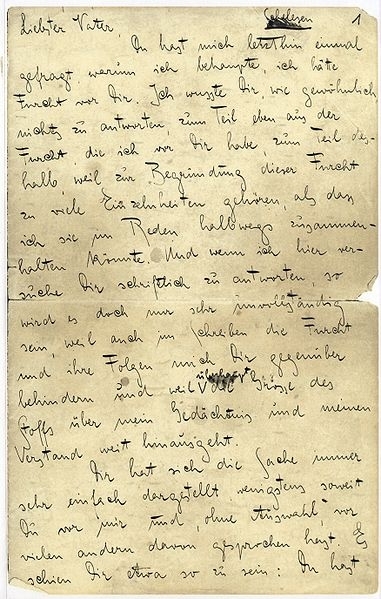 1
Liebster Vater,
Du hast mich letzthin einmal
gefragt, warum ich behaupte, ich hätte
Furcht vor Dir. Ich wusste Dir, wie gewöhnlich,
nichts zu antworten, zum Teil eben aus der
Furcht, die ich vor Dir habe, zum Teil des-
halb, weil zur Begründung dieser Furcht
zu viele Einzelnheiten gehören, als dass
ich sie im Reden halbwegs zusammen-
halten könnte. Und wenn ich hier ver-
suche Dir schriftlich zu antworten, so
wird es doch nur sehr unvollständig
sein, weil auch im Schreiben die Furcht
und ihre Folgen mich Dir gegenüber
behindern und weil überhaupt die Grösse des
Stoffs über mein Gedächtnis und meinen
Verstand weit hinausgeht.
Dir hat sich die Sache immer
sehr einfach dargestellt, wenigstens soweit
Du vor mir und, ohne Auswahl, vor
vielen andern davon gesprochen hast. Es
schien Dir etwa so zu sein: Du hast